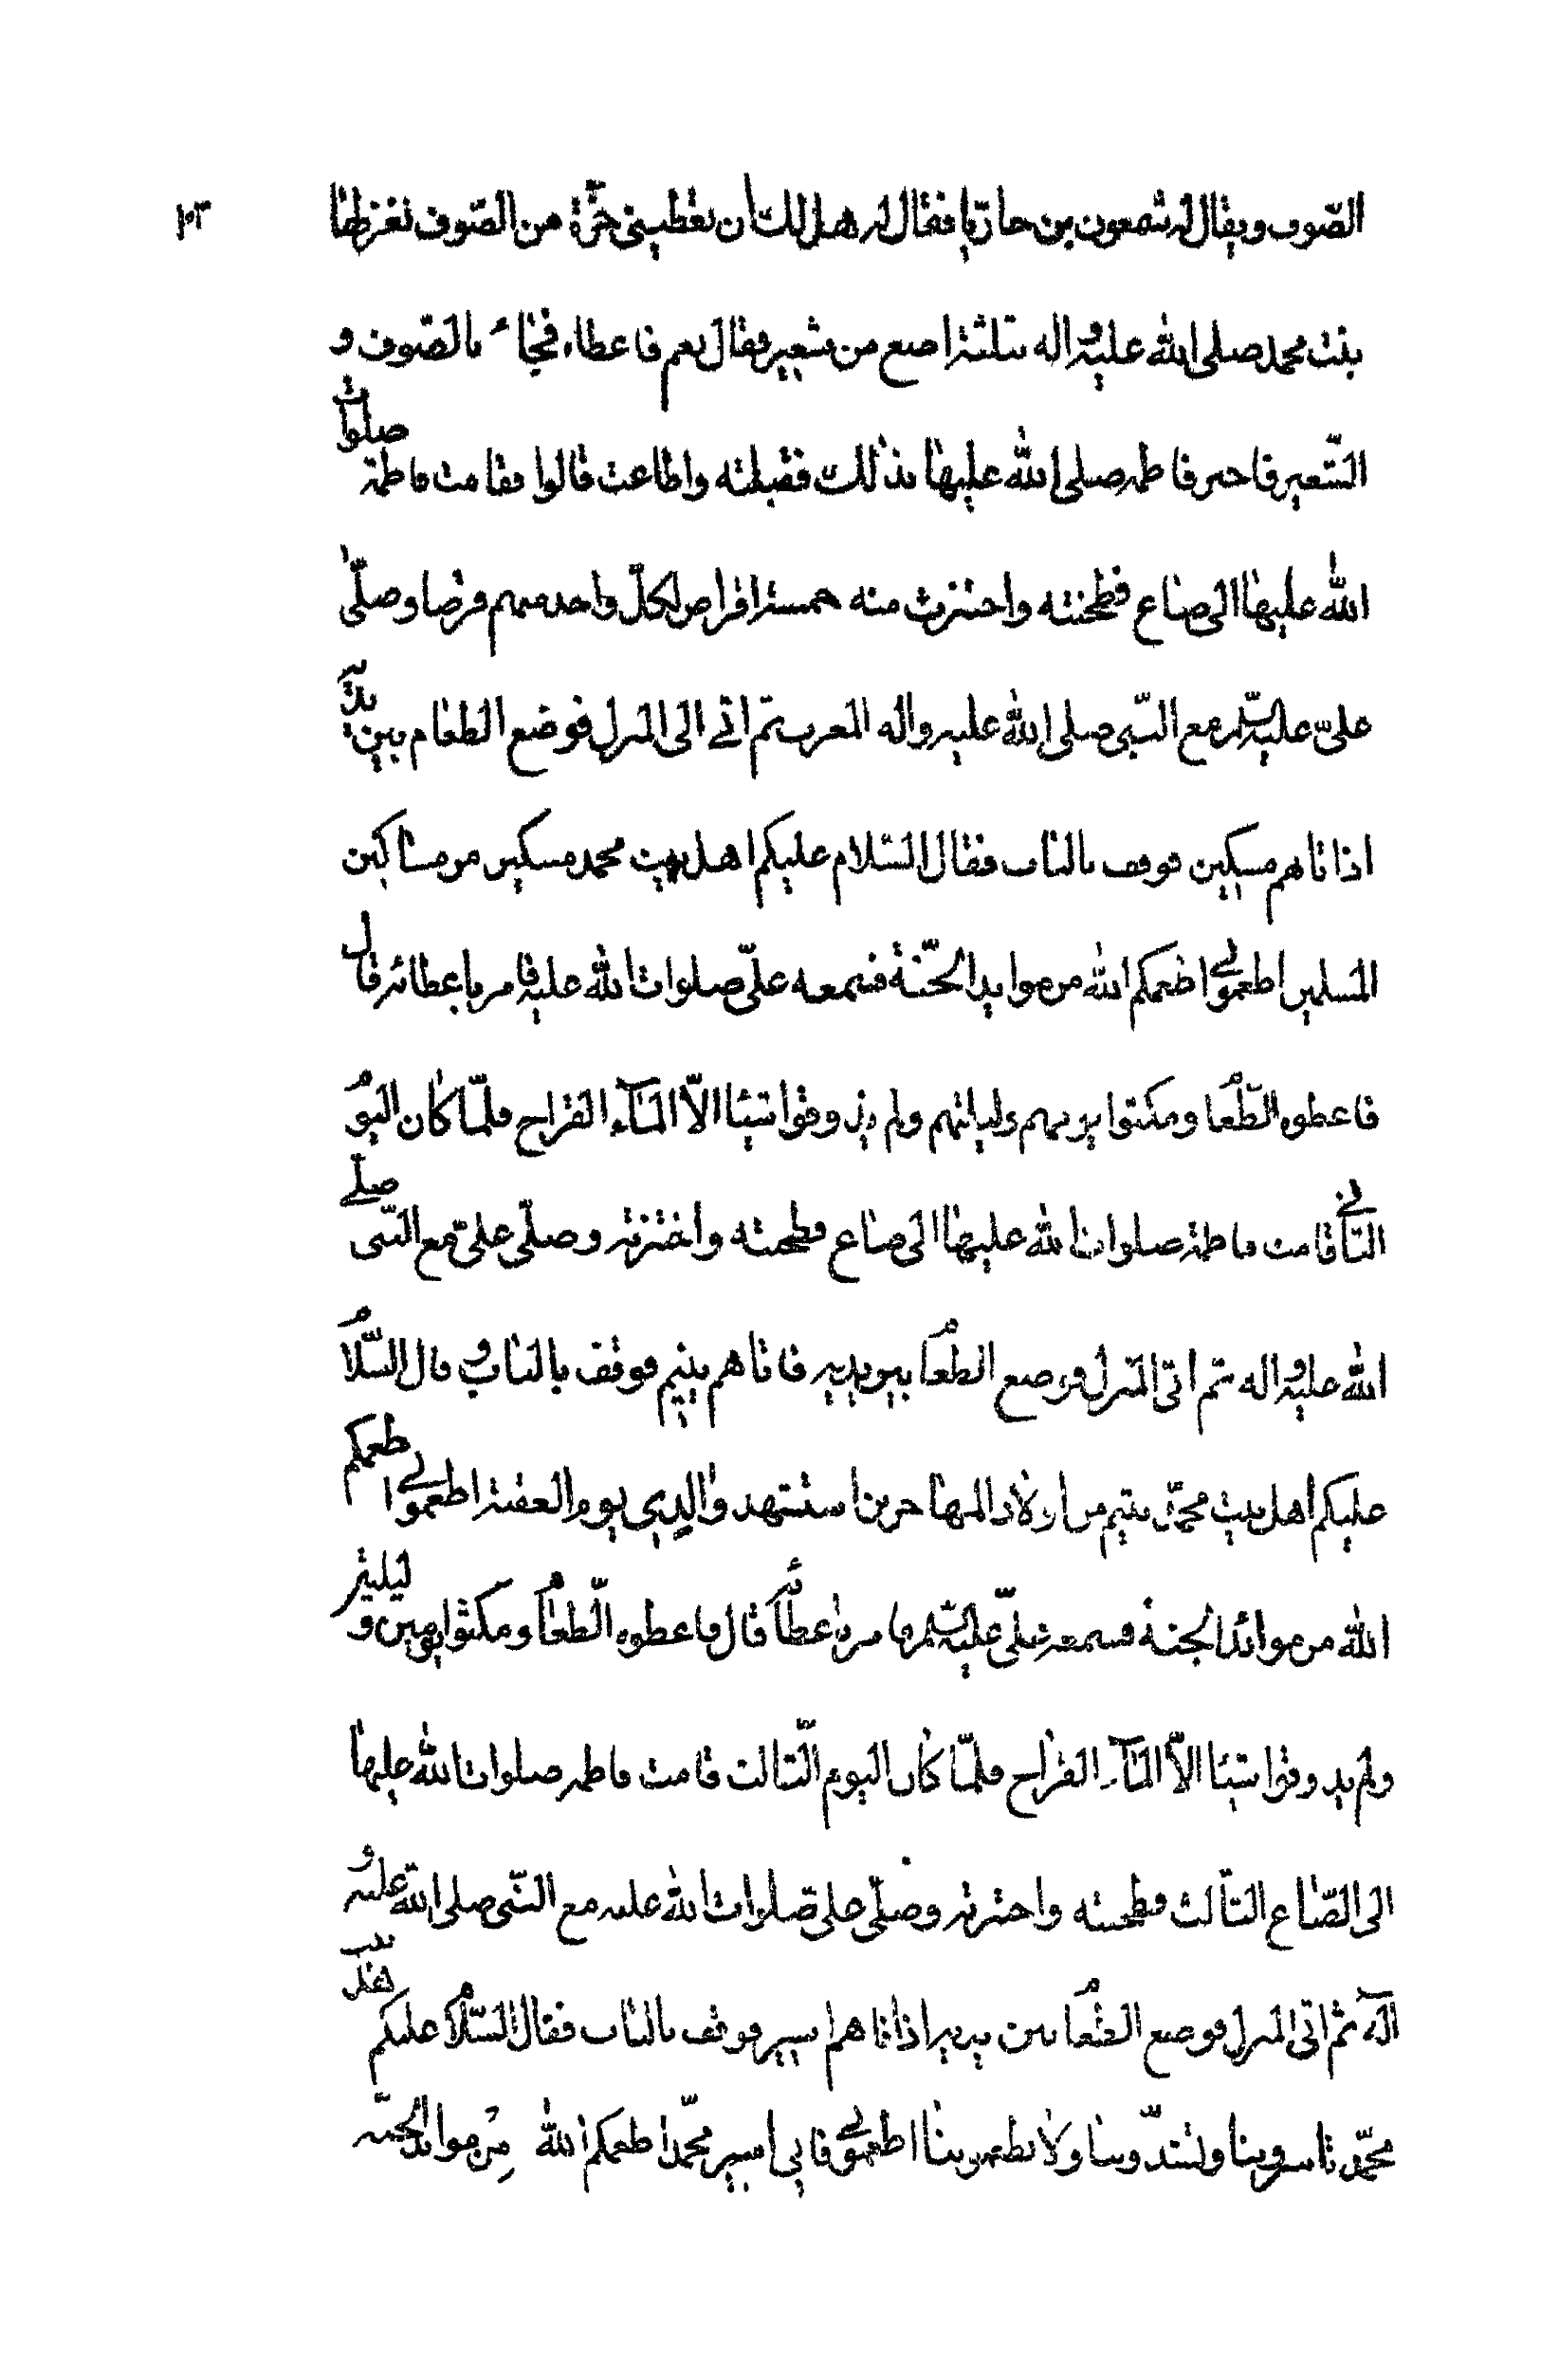 ١٠٣
الصّوف ويقال له شمعون بن حاريا فقال له هل لك ان تعطينى جزّة من الصّوف تغزلها
بنت محمد صلى الله عليه واله بثلثة اصع من شعير فقال نعم فاعطاه فجاء بالصّوف و
الشّعير فاخبر فاطمه صلى الله عليها بذلك فقبلته واطاعت قالوا فقامت فاطمة صلوات
الله عليها الى صاع فطحنته واختبزت منه خمسة اقراص لكلّ واحد منهم قرصا وصلّى
علىّ عليه السّلم مع النّبى صلى الله عليه واله المغرب ثم اتى الى المنزل فوضع الطعام بين يديه
اذ اتاهم مسكين فوقف بالباب فقال السّلام عليكم اهل بيت محمد مسكين من مساكين
المسلمين اطعمونى اطعمكم الله من موايد الجّنة فسمعه علىّ صلوات الله عليه فامر باعطائه قال
فاعطوه الطّعام ومكثوا يومهم وليلتهم ولم يذوقوا شيئا الاّ المآء القراح فلمّا كان اليوم
الثّانى قامت فاطمة صلوات الله عليها الى صاع فطحنته واختبزته وصلّى علىّ مع النّبى صلّى
الله عليه واله ثم اتى المنزل فوضع الطعام بين يديه فاتاهم يتيم فوقف بالباب وقال السّلام
عليكم اهل بيت محمّد يتيم من اولاد المهاجرين استشهد والدي يوم العقبة اطعمونى اطعمكم
الله من موائد الجنة فسمعه علىّ عليه السّلم فامر باعطائه قال فاعطوه الطّعام ومكثوا يومين و ليلتين
ولم يذوقوا شيئا الاّ المآء القراح فلمّا كان اليوم الثّالث قامت فاطمه صلوات الله عليها
الى الصّاع الثّالث فطحنته واختبزته وصلّى على صلوات الله عليه مع النّبى صلى الله عليه و
آله ثم اتى المنزل فوضع الطعام بين يديه اذ اتاهم اسير فوقف بالباب فقال السّلام عليكم اهل بيت
محمّد تاسروننا وتشدّوننا ولا تطعموننا اطعمونى فانى اسير محمّد اطعمكم الله مِنْ موائد الجنّه